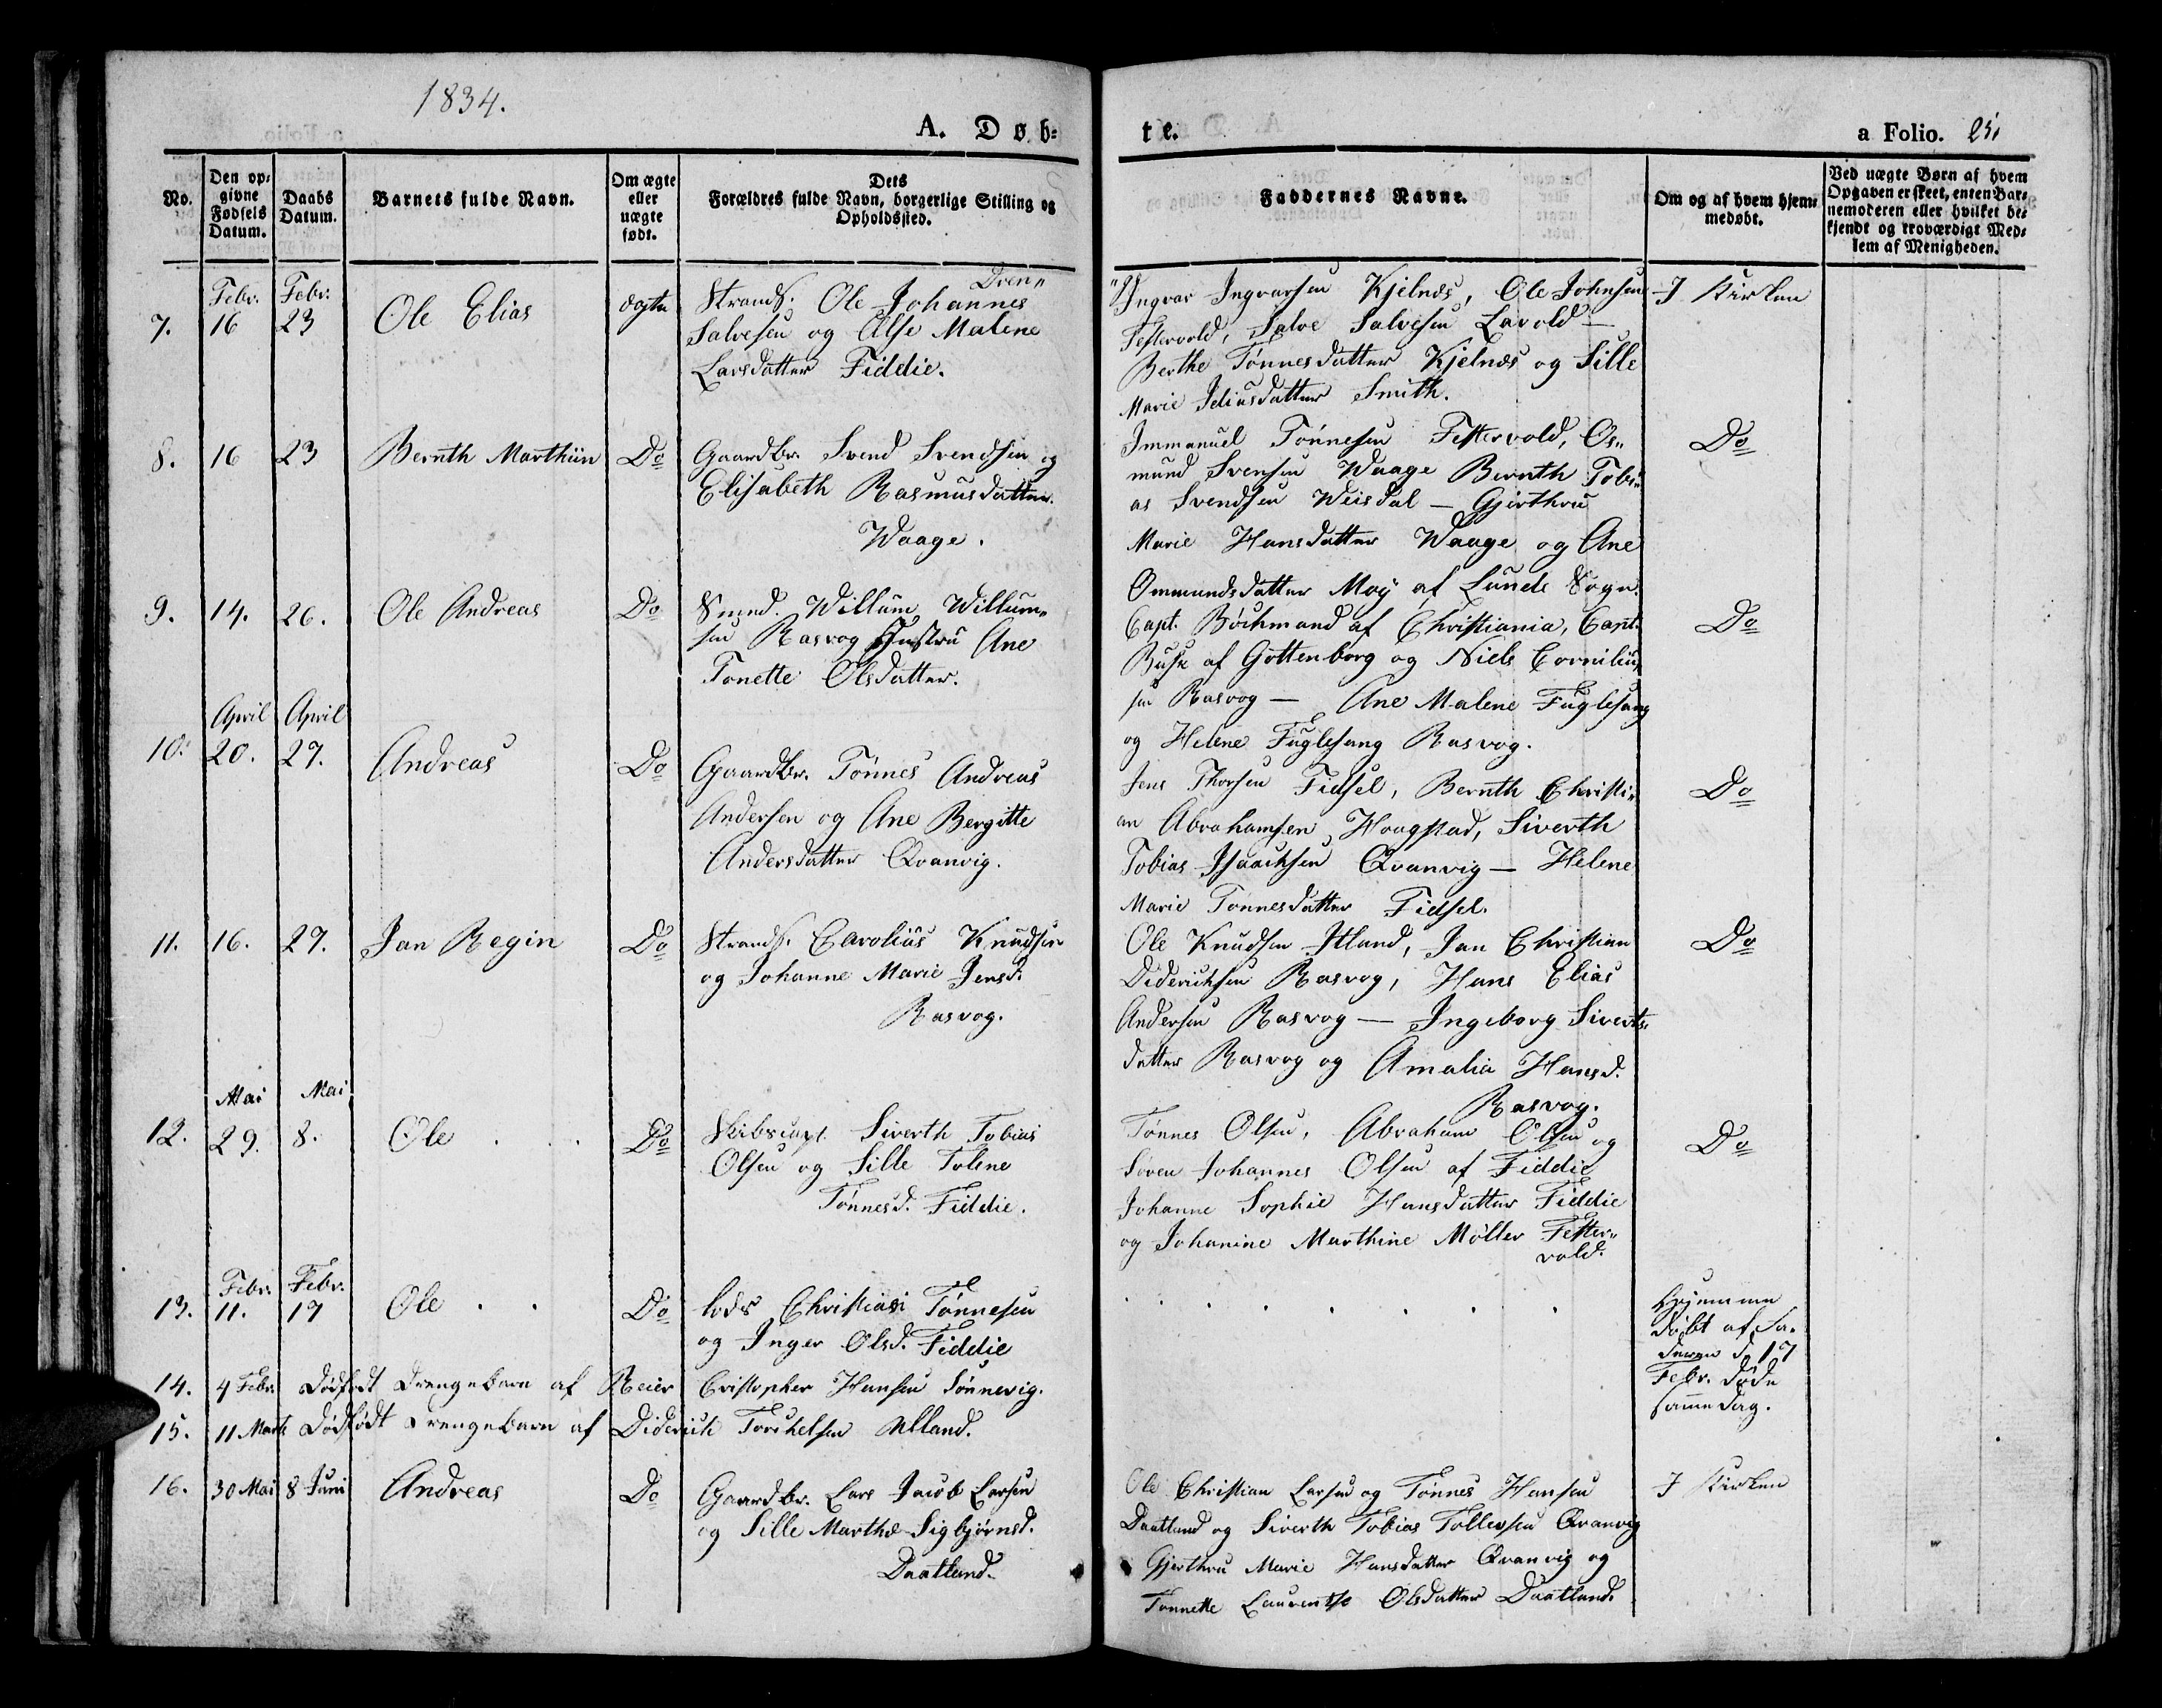 1834.
A. Døb=
te.
a Folio. 25.
No.
Den op=
givne
Fødsels
Datum.
Daabs
Datum.
Barnets fulde Navn.
Om ægte
eller
uægte
født.
Dets
Forældres fulde Navn, borgerlige Stilling og
Opholdssted.
Faddernes Navne.
Om og af hvem hjem=
medøbt.
Ved uægte Børn af hvem
Opgaven er skeet, enten Bar=
nemoderen eller hvilket be=
kjendt og troværdigt Med=
lem af Menigheden.
Febr. Febr.
7. 16 23 Ole Elias ægte Strands. Ole Johannes
Salvesen og Else Malene
Larsdatter Fiddie.
Ingvar Ingvarsen Kjelnes, Ole Johnsen
Festervold, Salve Salvesen Lavold —
Berthe Tønnesdatter Kjelnes og Sille
Marie datter Smith.
I Kirken
8. 16 23 Bernth Marthiin Do Gaardbr. Svend Svendsen og
Elisabeth Rasmusdatter
Waage.
Immanuel Tønnesen Festervold, Os„
mund Svensen Waage Bernth Tobi„
as Svendsen Weisdal — Gjerthru
Marie Hansdatter Waage og Ane
Ommundsdatter Moy af Lunds Sogn.
Do
9. 14. 26. Ole Andreas Do Smed. Willum Willum„
sen Rasvog Hustru Ane
Tonette Olsdatter.
Capt. Böckmand af Christiania, Capt.
Buse af Gottenborg og Niels Corniliu„
sen Rasvog — Ane Malene Fuglesang
og Helene Fuglesang Rasvog.
Do
April April
10. 20. 27. Andreas Do Gaardbr. Tønnes Andreas
Andersen og Ane Bergitte
Andersdatter Qvanvig.
Jens Thorsen Fidsel, Bernth Christi„
an Abrahamsen Hoagstad, Siverth
Tobias Isaachsen Qvanvig — Helene
Marie Tønnesdatter Fidsel.
Do
11. 16. 27. Jan Regin Do Strands. Carolius Knudsen
og Johanne Marie Jensd.
Rasvog.
Ole Knudsen Itland, Jan Christian
Diderichsen Rasvog, Hans Elias
Andersen Rasvog — Ingeborg Siverts„
datter Rasvog og Amalia Hansd.
Rasvog.
Do
Mai Mai
12. 29. 8. Ole . . . Do Skibscapt. Siverth Tobias
Olsen og Sille Tolene
Tønnesd. Fiddie.
Tønnes Olsen, Abraham Olsen og
Søren Johannes Olsen af Fiddie
Johanne Sophie Hansdatter Fiddie
og Johanine Marthine Møller Fester„
vold.
Do
Febr. Febr.
13. 11. 17 Ole . . Do lods Christian Tønnesen
og Inger Olsd. Fiddie
Hjemme
døbt af Fa„
deren d. 17
Febr. døde
samme dag.
14. 4 Febr. Dødfødt Drengebarn af Reier Cristopher Hansen Sønnevig.
15. 11 Marts Dødfødt Drengebarn af Diderich Torchelsen Utland.
16. 30 Mai 8 Juni Andreas Do Gaardbr. Lars Jacob Larsen
og Sille Marthe Sigbjørnsd.
Daatland.
Ole Christian Larsen og Tønnes Hansen
Daatland og Siverth Tobias Tollevsen Qvanvig
Gjerthru Marie Hansdatter Qvanvig og
Tonnette Laurentse Olsdatter Daatland.
I Kirken